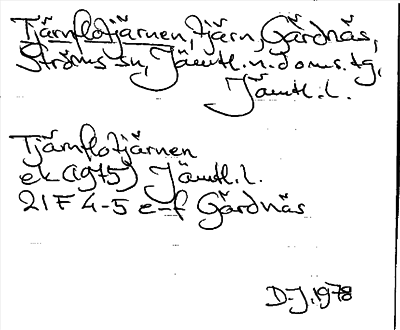 Tjärnflotjärnen, tjärn, Gärdnäs,
Ströms sn, Jämtl. n. doms. tg,
Jämtl. l.
Tjärnflotjärnen
ek (1975) Jämtl. l.
21F 4-5 e-f Gärdnäs
D-J. 1978